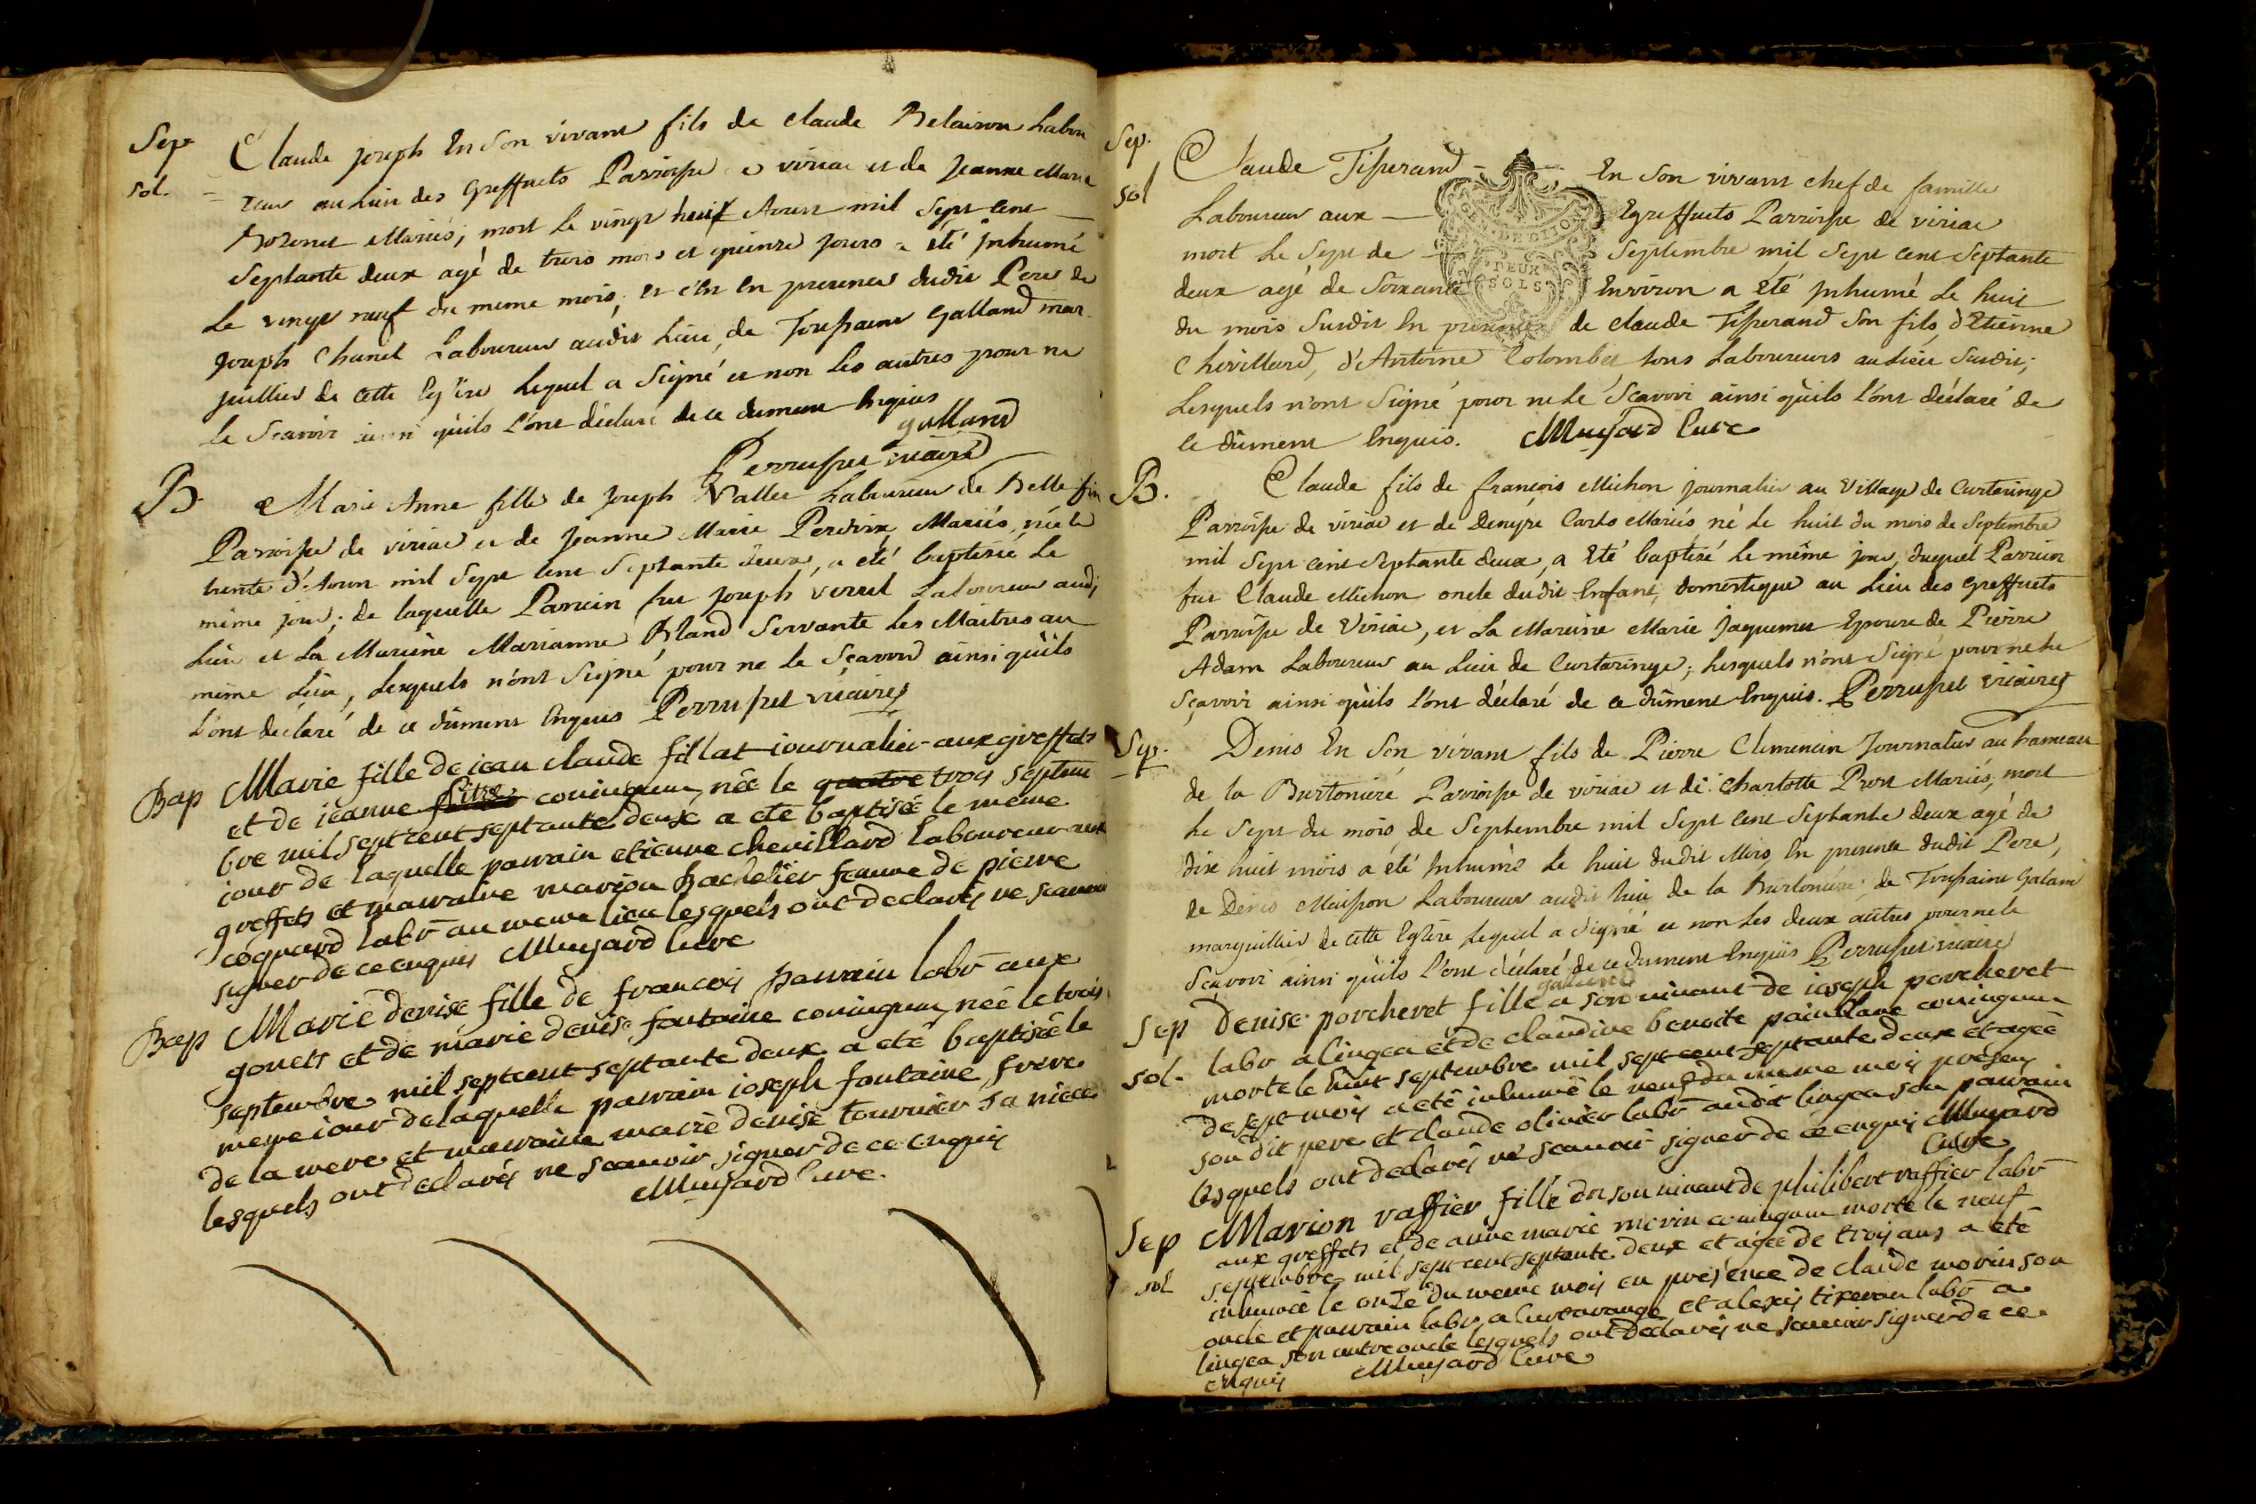 Sep.
sol.
Claude joseph En Son vivant fils de claude Belaison Labou
reur au Lieu des Greffuets Parroisse de viriac et de Jeanne Marie
Mariés; mort le vingt huit Aoust mil Sept cent
Septante deux agé de trois mois et quinze jours a été Jnhumé
Le vingt neuf du meme mois, et c'en En presence dudit Pere de
joseph Chanel Laboureur audit Lieu, de Toussaint Galland mar-
guillier de cette Eglise Lequel a Signé et non les autres pour ne
le Scavoir ainsi qu'ils l'ont déclaré de ce dument Enquis
galland
Perruset vicaire
B. Marie Anne fille de Joseph Vallee Laboureur de Bellefin
Parroisse de viriac et de Jeanne Marie Perdrix Mariés, née le
trente d'Aoust mil Sept cent Septante deux, a été baptisée le
même jour; de laquelle Parrain fut joseph veruel Laboureur audi
Lieu et La Mareine Marianne Bland Servante des Maitres au
même Lieu, Lesquels n'ont Signé pour ne le Sçavoir ainsi qu'ils
l'ont déclaré de ce dûment Enquis Perruset vicaire
Bap Marie fille de jean claude fillat journalier aux greffets
et de jeanne conjugum, née le quatre trois septem
bre mil sept cent septante deux a eté baptisée le meme
jour de laquelle parrain etienne chevillard laboureur aux
greffets et marraine marion bachelier femme de pierre
coquard labr au meme lieu lesquels ont declarés ne scavoir
signer de ce enquis Muyard Cure
Bap Marie denise fille de francois parrain labr aux
gonets et de marie denise fontaine conjugum, née le trois
septembre mil sept cent septante deux a eté baptisée le
meme jour de laquelle parrain joseph fontaine frere
de la mere et marraine marie denise tournier sa niece
lesquels ont declarés ne scavoir signer de ce enquis
Muyard Cure.
Sep.
sol
Claude Tisserand En Son vivant chef de famille
Laboureur aux Egreffuets Parroisse de viriac
mort Le Sept de Septembre mil Sept cent Septante
deux agé de Soixante Environ a été Jnhumé Le huit
du mois Susdit En presence de claude Tisserand Son fils, d'Etienne
Chevillard, d'Antoine Colombet tous Laboureurs audieu Susdit;
Lesquels n'ont Signé pour ne le Scavoir ainsi qu'ils l'ont déclaré de
ce dûment Enquis. Muyard Cure
GEN. DE DIJON
DEUX
SOLS
B. Claude fils de francois Michon journalier au Village de Curtaringe
Parroisse de viriac et de Denyse Carlo Mariés né Le huit du mois de Septembre
mil Sept cent Septante deux, a été baptisé le même jour, duquel Parrain
fut Claude Michon oncle dudit Enfant, domestique au Lieu des Greffuets
Parroisse de Viriac, et La Mareine Marie Jaquemet Epouse de Pierre
Adam Laboureur au Lieu de Curtaringe; Lesquels n'ont Signé pour ne le
Sçavoir ainsi qu'ils l'ont déclaré de ce dûment Enquis. Perruset vicaire
Sep. Denis En Son vivant fils de Pierre Clemencin Journalier au hameau
de la Burtoniere Parroisse de viriac et de Charlotte Pron Mariés, mort
Le Sept du mois de Septembre mil Sept cent Septante deux agé de
dix huit mois a été Jnhumé le huit dudit Mois, En presence dudit Pere,
de Denis Maisson Laboureur audit Lieu de la Burtoniere; de Toussaint Galand
marguillier de cette Eglise Lequel a Signé et non Les deux autres pour ne le
Sçavoir ainsi qu'ils l'ont déclaré de ce dument Enquis Perruset vicaire
galand
Sep
sol.
Denise porcheret fille a son vivant de joseph porcheret
labr a lingea et de claudine benoite painblanc conjugum
morte le huit septembre mil sept cent septante deux et agée
de sept mois a eté inhumée le neuf du meme mois presens
son dit pere et claude olivier labr audit lingea son parrain
lesquels ont declarés ne scavoir signer de ce enquis Muyard
Cure
Sep
sol
Marion vaffier fille en son vivant de philibert vaffier labr
aux greffets et de anne marie morin conjugum morte le neuf
septembre mil sept cent septante deux et agée de trois ans a eté
inhumée le onze du meme mois en presence de claude morin son
oncle et parrain labr a curtarange et alexis tixeran labr a
lingea son autre oncle lesquels ont declarés ne scavoir signer de ce
enquis Muyard Cure